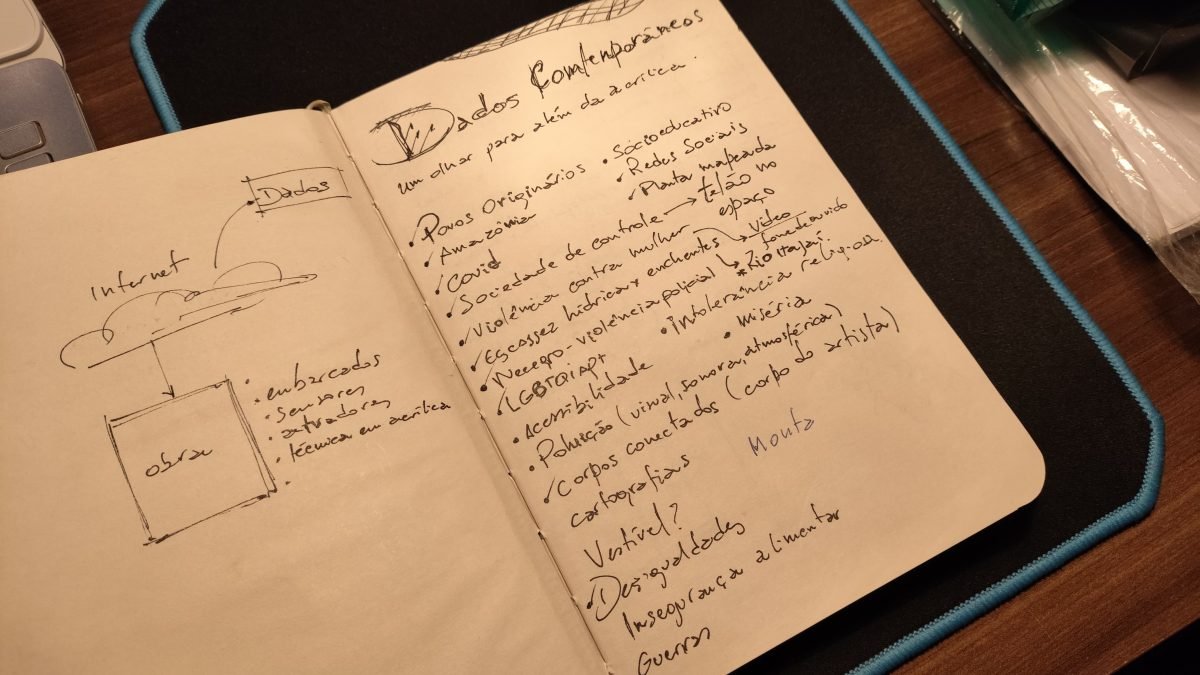 Dados
Internet
obra
• embarcados
• sensores
• atuadores
• técnica em acrílica
•
Dados Comtemporâneos
um olhar para além da acrílica.
• Povos Originários
• Amazônia
• Covid
• Sociedade de controle → telão no espaço
• Violência contra mulher → video
• Escassez hídrica x enchentes → * Rio Itajaí.
• Necropo-violência policial
• LGBTQIAP+
• Acessibilidade
• Poluição (visual, sonora, atmosférica)
• Corpos conectados (corpo do artista)
cartografias
Vestível?
• Desigualdades
Insegurança alimentar
Guerras
• Socioeducativo
• Redes Sociais
• Planta mapeada
• intolerância religiosa.
• miséria
Monta